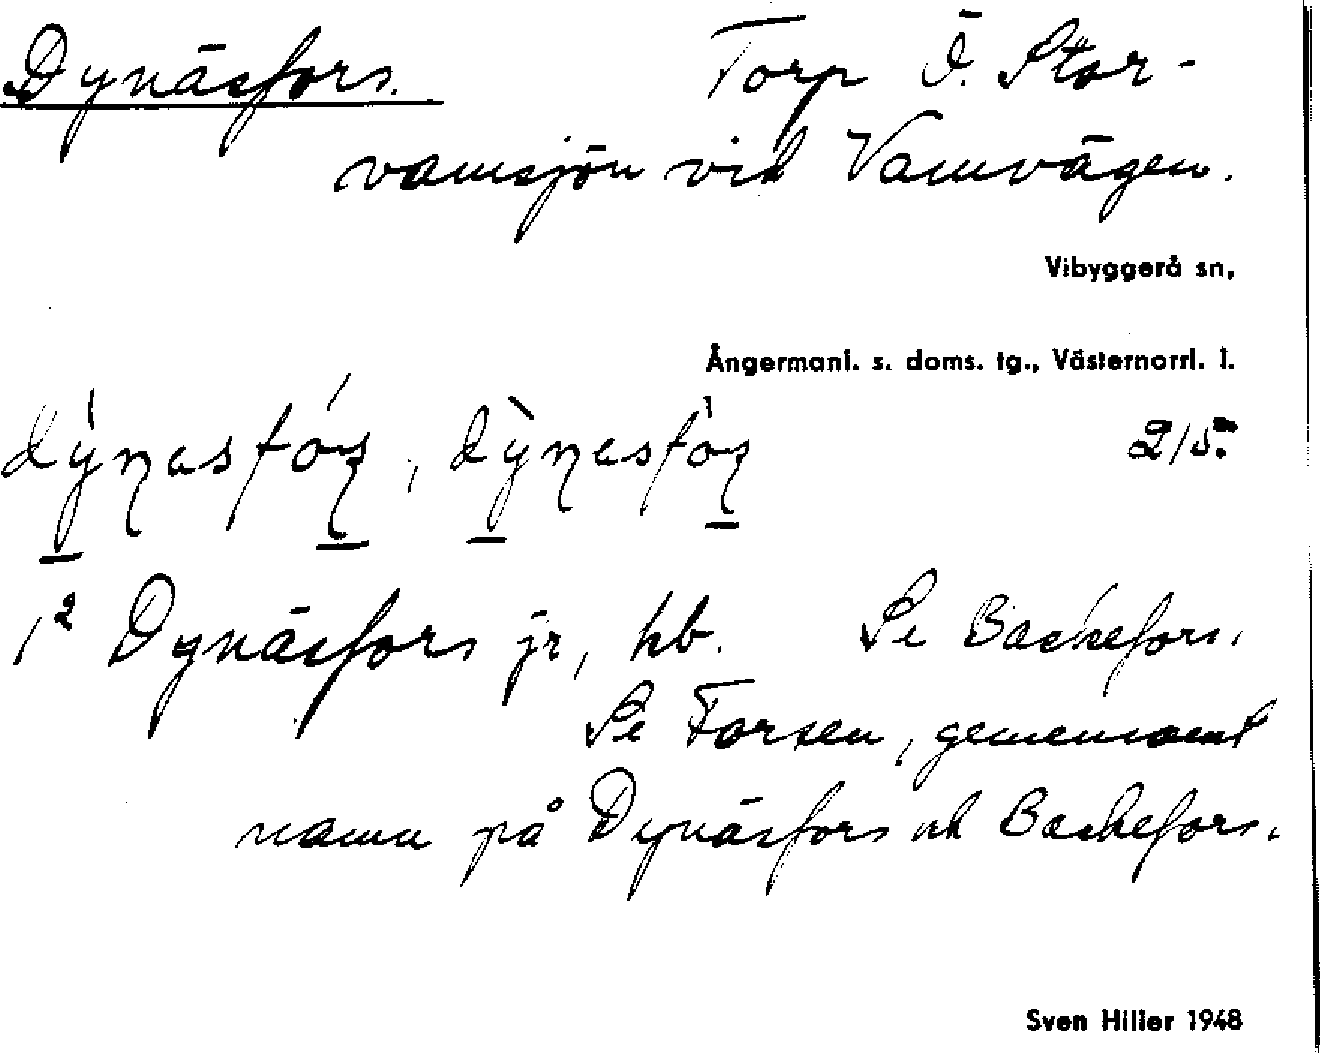 Dynäsfors. Torp Ö. Stor-
vamsjön vid Vamvägen.
Vibyggerå sn,
Ångermanl. s. doms. tg., Västernorrl. l.
215.
1² Dynäsfors jr, hb. Se Backefors.
Se Forsen, gemensamt
namn på Dynäsfors och Backefors.
Sven Hiller 1948